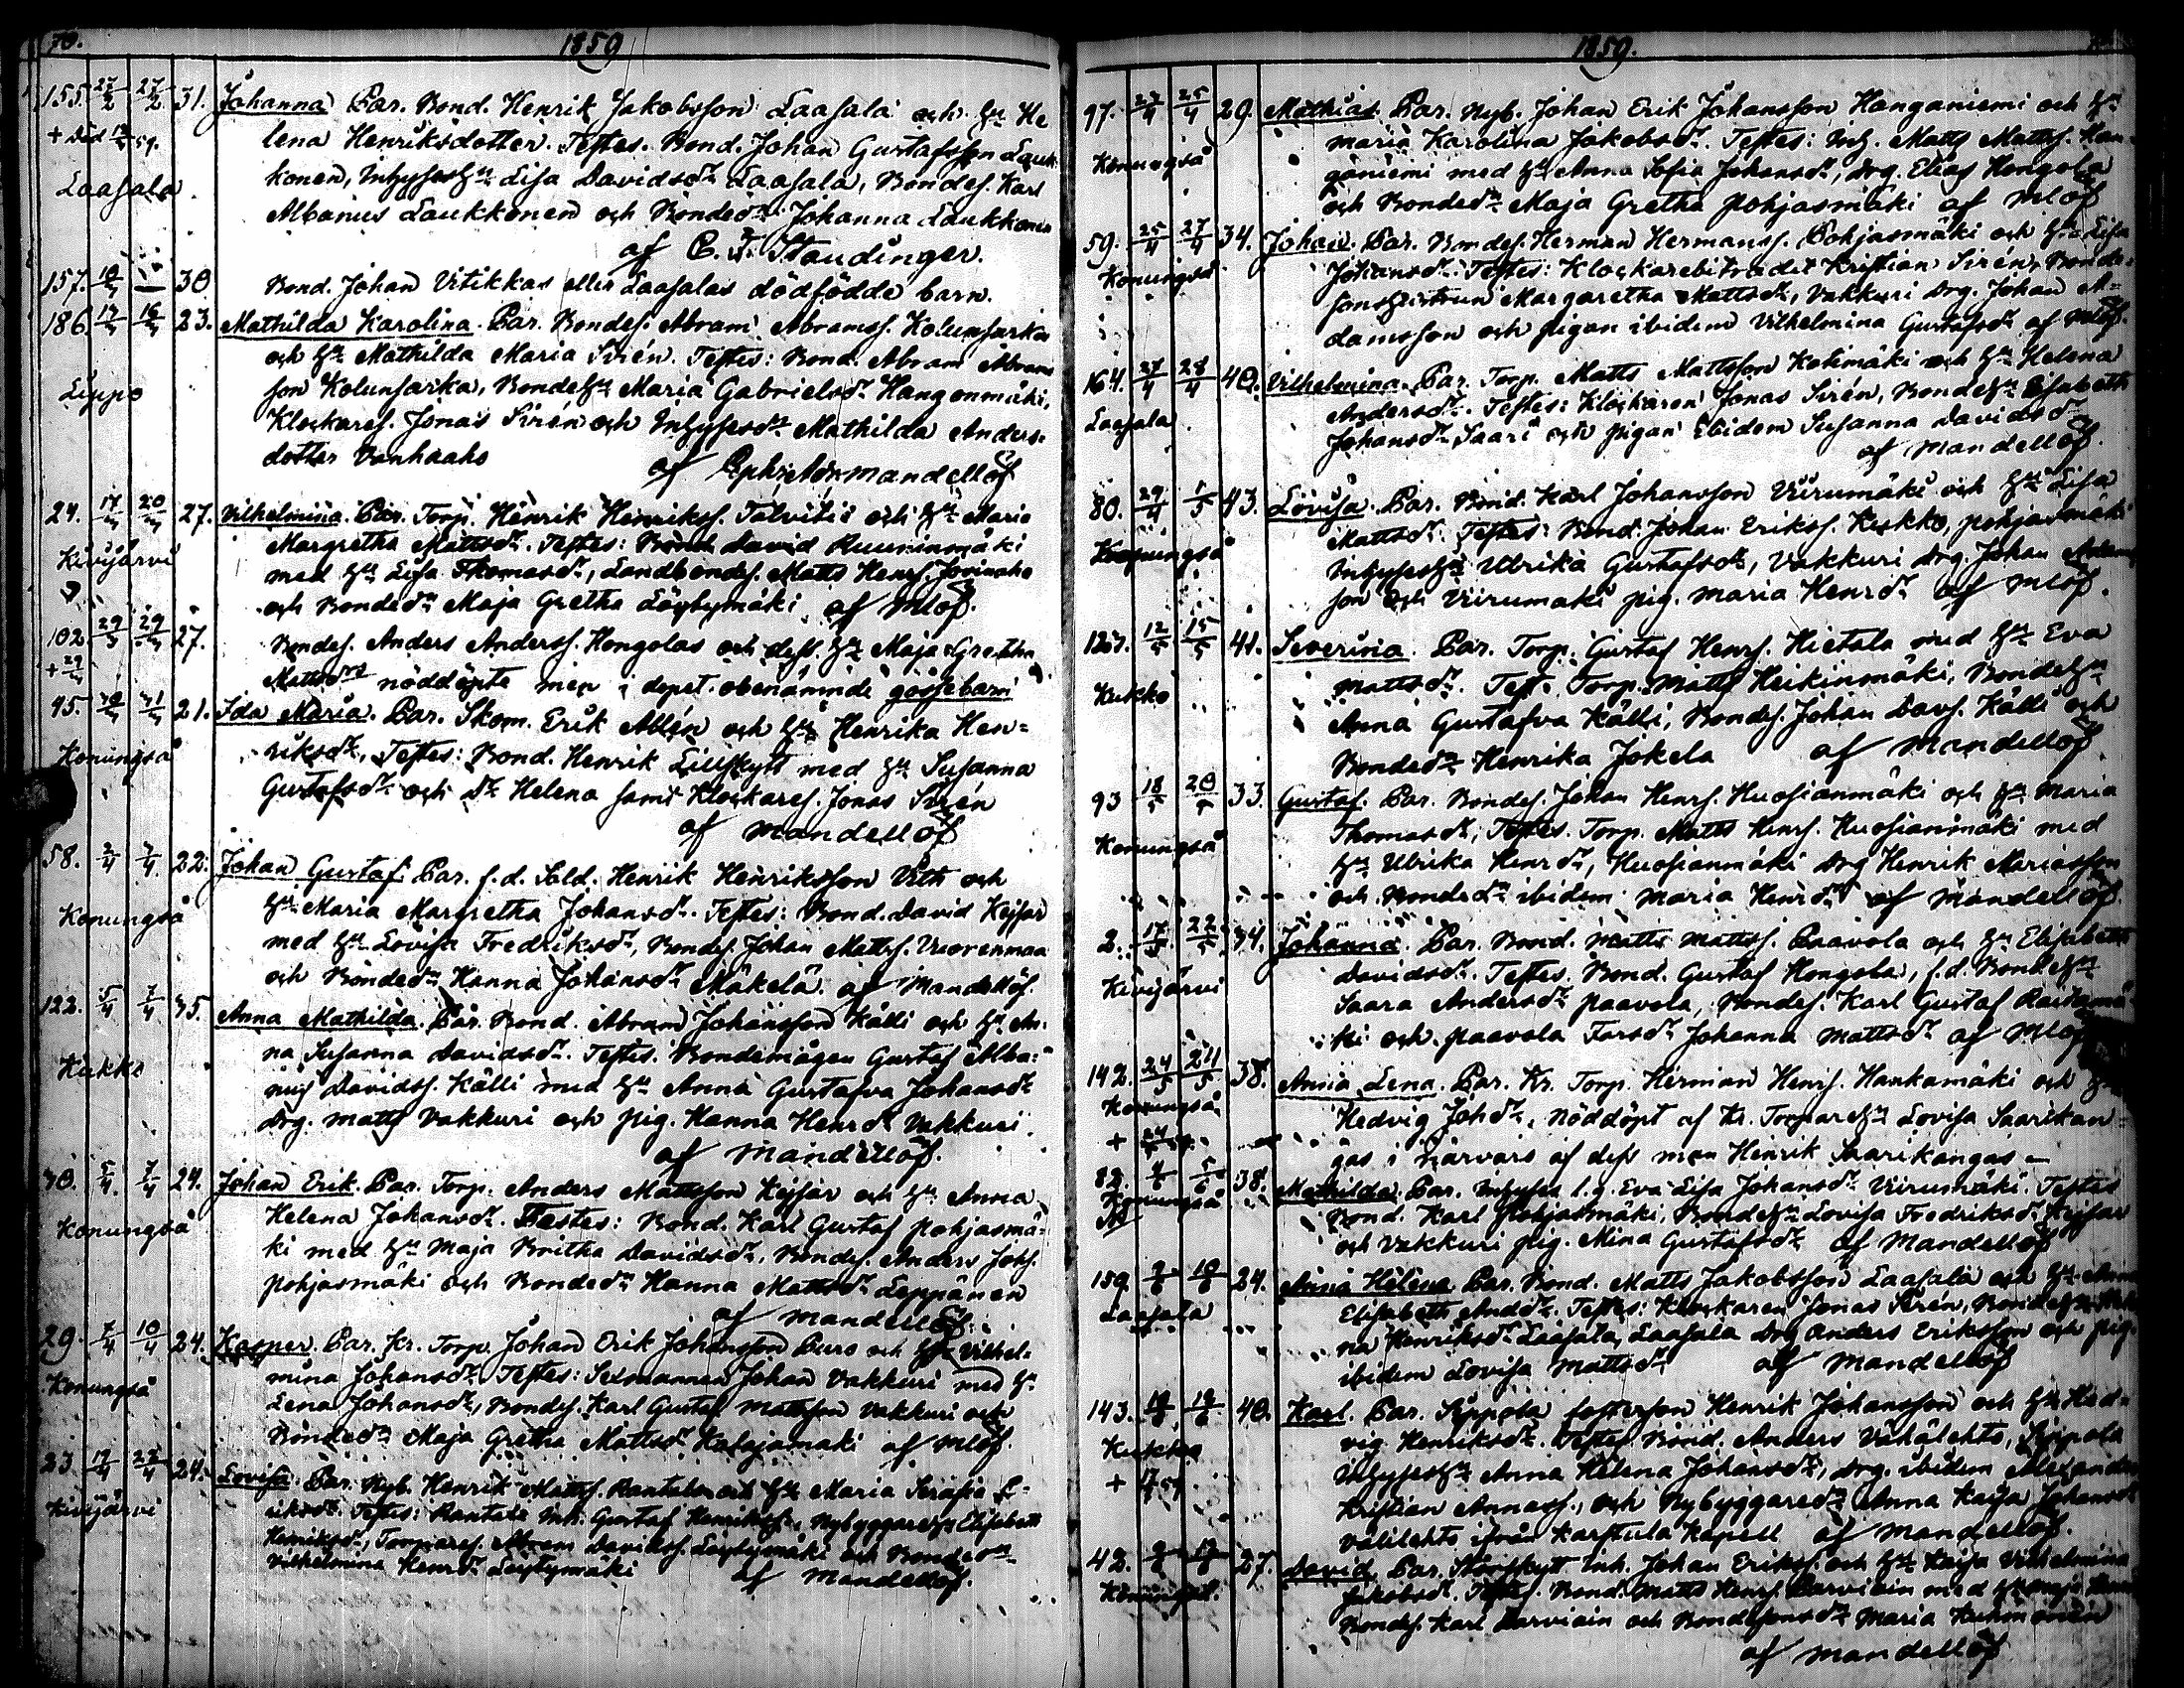 70.
1859
155. 27/2 27/2 31. Johanna Par. Bond. Henrik Jakobsson Laasala och Hu He
lena Henriksdotter. Testes. Bond. Johan Gustafsson Lauk-
konen, Inhyses Hu Lisa Davidsdr Laasala, Bondes. Karl
Laasala
Albanius Laukkonen och Bondedr Johanna Laukkonen
af C. F. Staudinger.
157. 30 Bond. Johan Vitikkas eller Laasalas dödfödde barn.
186. 23. Mathilda Karolina. Par. Bondes. Abram Abramss. Kolunsarka
och Hu Mathilda Maria Sirén. Testes: Bond. Abram Abrams
son Kolunsarka, Bonde Hu Maria Gabrielsdr Hangonmäki,
Lippo
Klockares. Jonas Sirén och Inhysesdr Mathilda Anders-
dotter Vanhaaho
af Mandellöf
24. 27. Vilhelmina. Par. Torp. Henrik Henrikss. Talvitie och Hu Maria
Margretha Mattsdr. Testes: Bond David Ruuninmäki
Kivijärvi
med Hu Lisa Thomasdr, Landbondes. Matts Henrs. Jovinaho
och Bondedr Maja Gretha Löytymäki af Mlöf.
102. 27. Bondes. Anders Anderss. Hongolas och dess Hu Maja Gretha
Mattsdrs nöddöpte men i dopet obenämnde gossebarn
45. 21. Ida Maria. Par. Skom. Erik Allén och Hu Henrika Hen-
riksdr, Testes: Bond. Henrik Lillskytt med Hu Susanna
Konungså
Gustafsdr och dr Helena samt Klockares. Jonas Sirén
af Mandellöf
58. 2/4 3/4 22. Johan Gustaf. Par. f.d. Sold. Henrik Henriksson Vith och
Hu Maria Margretha Johansdr. Testes: Bond. David Kejsar
Konungså
med Hu Lovisa Fredriksdr, Bondes. Johan Mattss. Vuorenmaa
och Bondedr Hanna Johansdr Mäkelä. af Mandellöf.
122. 5/4 7/4 35. Anna Mathilda. Par. Bond. Abram Johansson Källi och Hu An-
na Susanna Davidsdr. Testes. Bondemågen Gustaf Alba-
Kukko
nus Davidss. Källi med Hu Anna Gustafva Johansdr
drg. Matts Vakkuri och pig. Hanna Henrdr Vakkuri.
af Mandellöf.
30. 5/4 7/4 24. Johan Erik. Par. Torp. Anders Mattsson Kejsar och Hu Anna
Helena Johansdr. Testes: Bond. Karl Gustaf Pohjasmä-
Konungså
ki med Hu Maja Britha Davidsdr, Bondes. Anders Johs.
Pohjasmäki och Bondedr Hanna Mattsdr Leppänen
af Mandellöf.
29. 7/4 10/4 24. Kasper. Par. Kr. Torp. Johan Erik Johansson Puro och Hu Vilhel-
mina Johansdr. Testes: Sexmannen Johan Vakkuri med Hu
Konungså
Lena Johansdr, Bondes. Karl Gustaf Mattsson Vakkuri och
Bondedr Maja Gretha Mattsdr Katajamäki af Mlöf.
23. 24. Lovisa. Par. Nyb. Henrik Mattss. Rantala och Hu Maria Serafia E-
riksdr. Testes: Rantala Inh. Gustaf Henrikss., Nybyggare Hu Elisabeth
Kivijärvi
Henriksdr, Torpares. Abram Davidss. Löytymäki och Bondedr
Vilhelmina Henrdr Löytymäki
af Mandellöf.
1859.
97. 25/4 29. Mathias. Par. Nyb. Johan Erik Johansson Hanganiemi och Hu
Maria Karolina Jakobsdr. Testes: Inh. Matts Mattss. Han-
Konungså
ganiemi med Hu Anna Sofia Johansdr, drg. Elias Hongola
och Bondedr Maja Gretha Pohjasmäki af Mlöf
59. 25/4 27/4 34. Johan. Par. Bondes. Herman Hermanss. Pohjasmäki och Hu Lisa
Johansdr. Testes: Klockarebiträdet Kristian Sirén, Bonde-
Konungså
sons Margaretha Mattsdr, Vakkuri drg. Johan A-
damsson och pigan ibidem Vilhelmina Gustafsdr af Mlöf.
164. 27/4 28/4 40. Vilhelmina. Par. Torp. Matts Mattsson Kotimäki och Hu Helena
Andersdr. Testes: Klockaren Jonas Sirén, Bonde Hu Elisabeth
Laasala
Johansdr Saari och pigan ibidem Susanna Davidsdr
af Mandellöf.
80. 29/4 1/5 43. Lovisa. Par. Bond. Karl Johansson Viirumäki och Hu Lisa
Mattsdr. Testes: Bond. Johan Erikss. Kukko, Pohjasmäki
Konungså
Inhyses Hu Ulrika Gustafsdr, Vakkuri drg. Johan
son och Viirumäki pig. Maria Henrdr af Mlöf.
123. 12/5 15/5 41. Severina. Par. Torp. Gustaf Henrs. Hietala med Hu Eva
Mattsdr. Test. Torp. Matts Heikinmäki, Bonde Hu
Kukko
Anna Gustafva Källi, Bondes. Johan Davs. Källi och
Bondedr Henrika Jokela af Mandellöf
93 18/5 20/5 33. Gustaf. Par. Bondes. Johan Henrs. Huosianmäki och Hu Maria
Thomasdr, Testes. Torp. Matts Henrs. Huosianmäki med
Konungså
Hu Ulrika Henrdr, Huosianmäki drg Henrik Mariasson
och Bondedr ibidem Maria Henrdr af Mandellöf.
2. 17/5 22/5 34. Johanna. Par. Bond. Matts Mattss. Paavola och Hu Elisabeth
Davidsdr. Testes. Bond. Gustaf Hongola, f.d. Bonde Hu
Kivijärvi
Saara Andersdr Paavola, Bondes. Karl Gustaf Rastamä-
ki och Paavola Torsdr Johanna Mattsdr af Mlöf
142. 24/5 24/5 38. Anna Lena. Par. Kr. Torp. Herman Henrs. Hankamäki och Hu
Konungså
Hedvig Johdr, nöddöpt af Kr. Torpare Hu Lovisa Saarikan-
gas i närvaro af dess man Henrik Saarikangas
82. 38. Mathilda. Par. Inhyses l.q. Eva Lisa Johansdr Viirumäki. Testes
Konungså
Bond. Karl Pohjasmäki, Bonde Hu Lovisa Fredriksdr Kejsar
och Vakkuri pig. Mina Gustafsdr af Mandellöf
159. 24. Anna Helena. Par. Bond. Matts Jakobsson Laasala och Hu Anna
Elisabeth Andsdr. Testes: Klockaren Jonas Sirén, Bonde Hu
Laasala
na Henriksdr Laasala, Laasala drg Anders Eriksson och pig.
ibidem Lovisa Mattsdr af Mandellöf
143. 40. Karl. Par. Sippola fosterson Henrik Johansson och Hu Hed-
vig Henriksdr. Testes Bond. Anders Vähälehto, Sippola
Kukko
Inhyses Hu Anna Helena Johansdr, drg. ibidem Alexander
Kristian Annass., och Nybyggaredr Anna Kaisa Johansdr
Välilehto ifrån Karstula Kapell af Mandellöf.
42. 27. David. Par. Storskytt Inh. Johan Erikss. och Hu Kaisa Vilhelmina
Jakobsdr. Testes. Bond. Matts Henrs. Parviain med Hu
Konungså.
Bondes. Karl Parviain och Bondesonsdr Maria
af Mandellöf